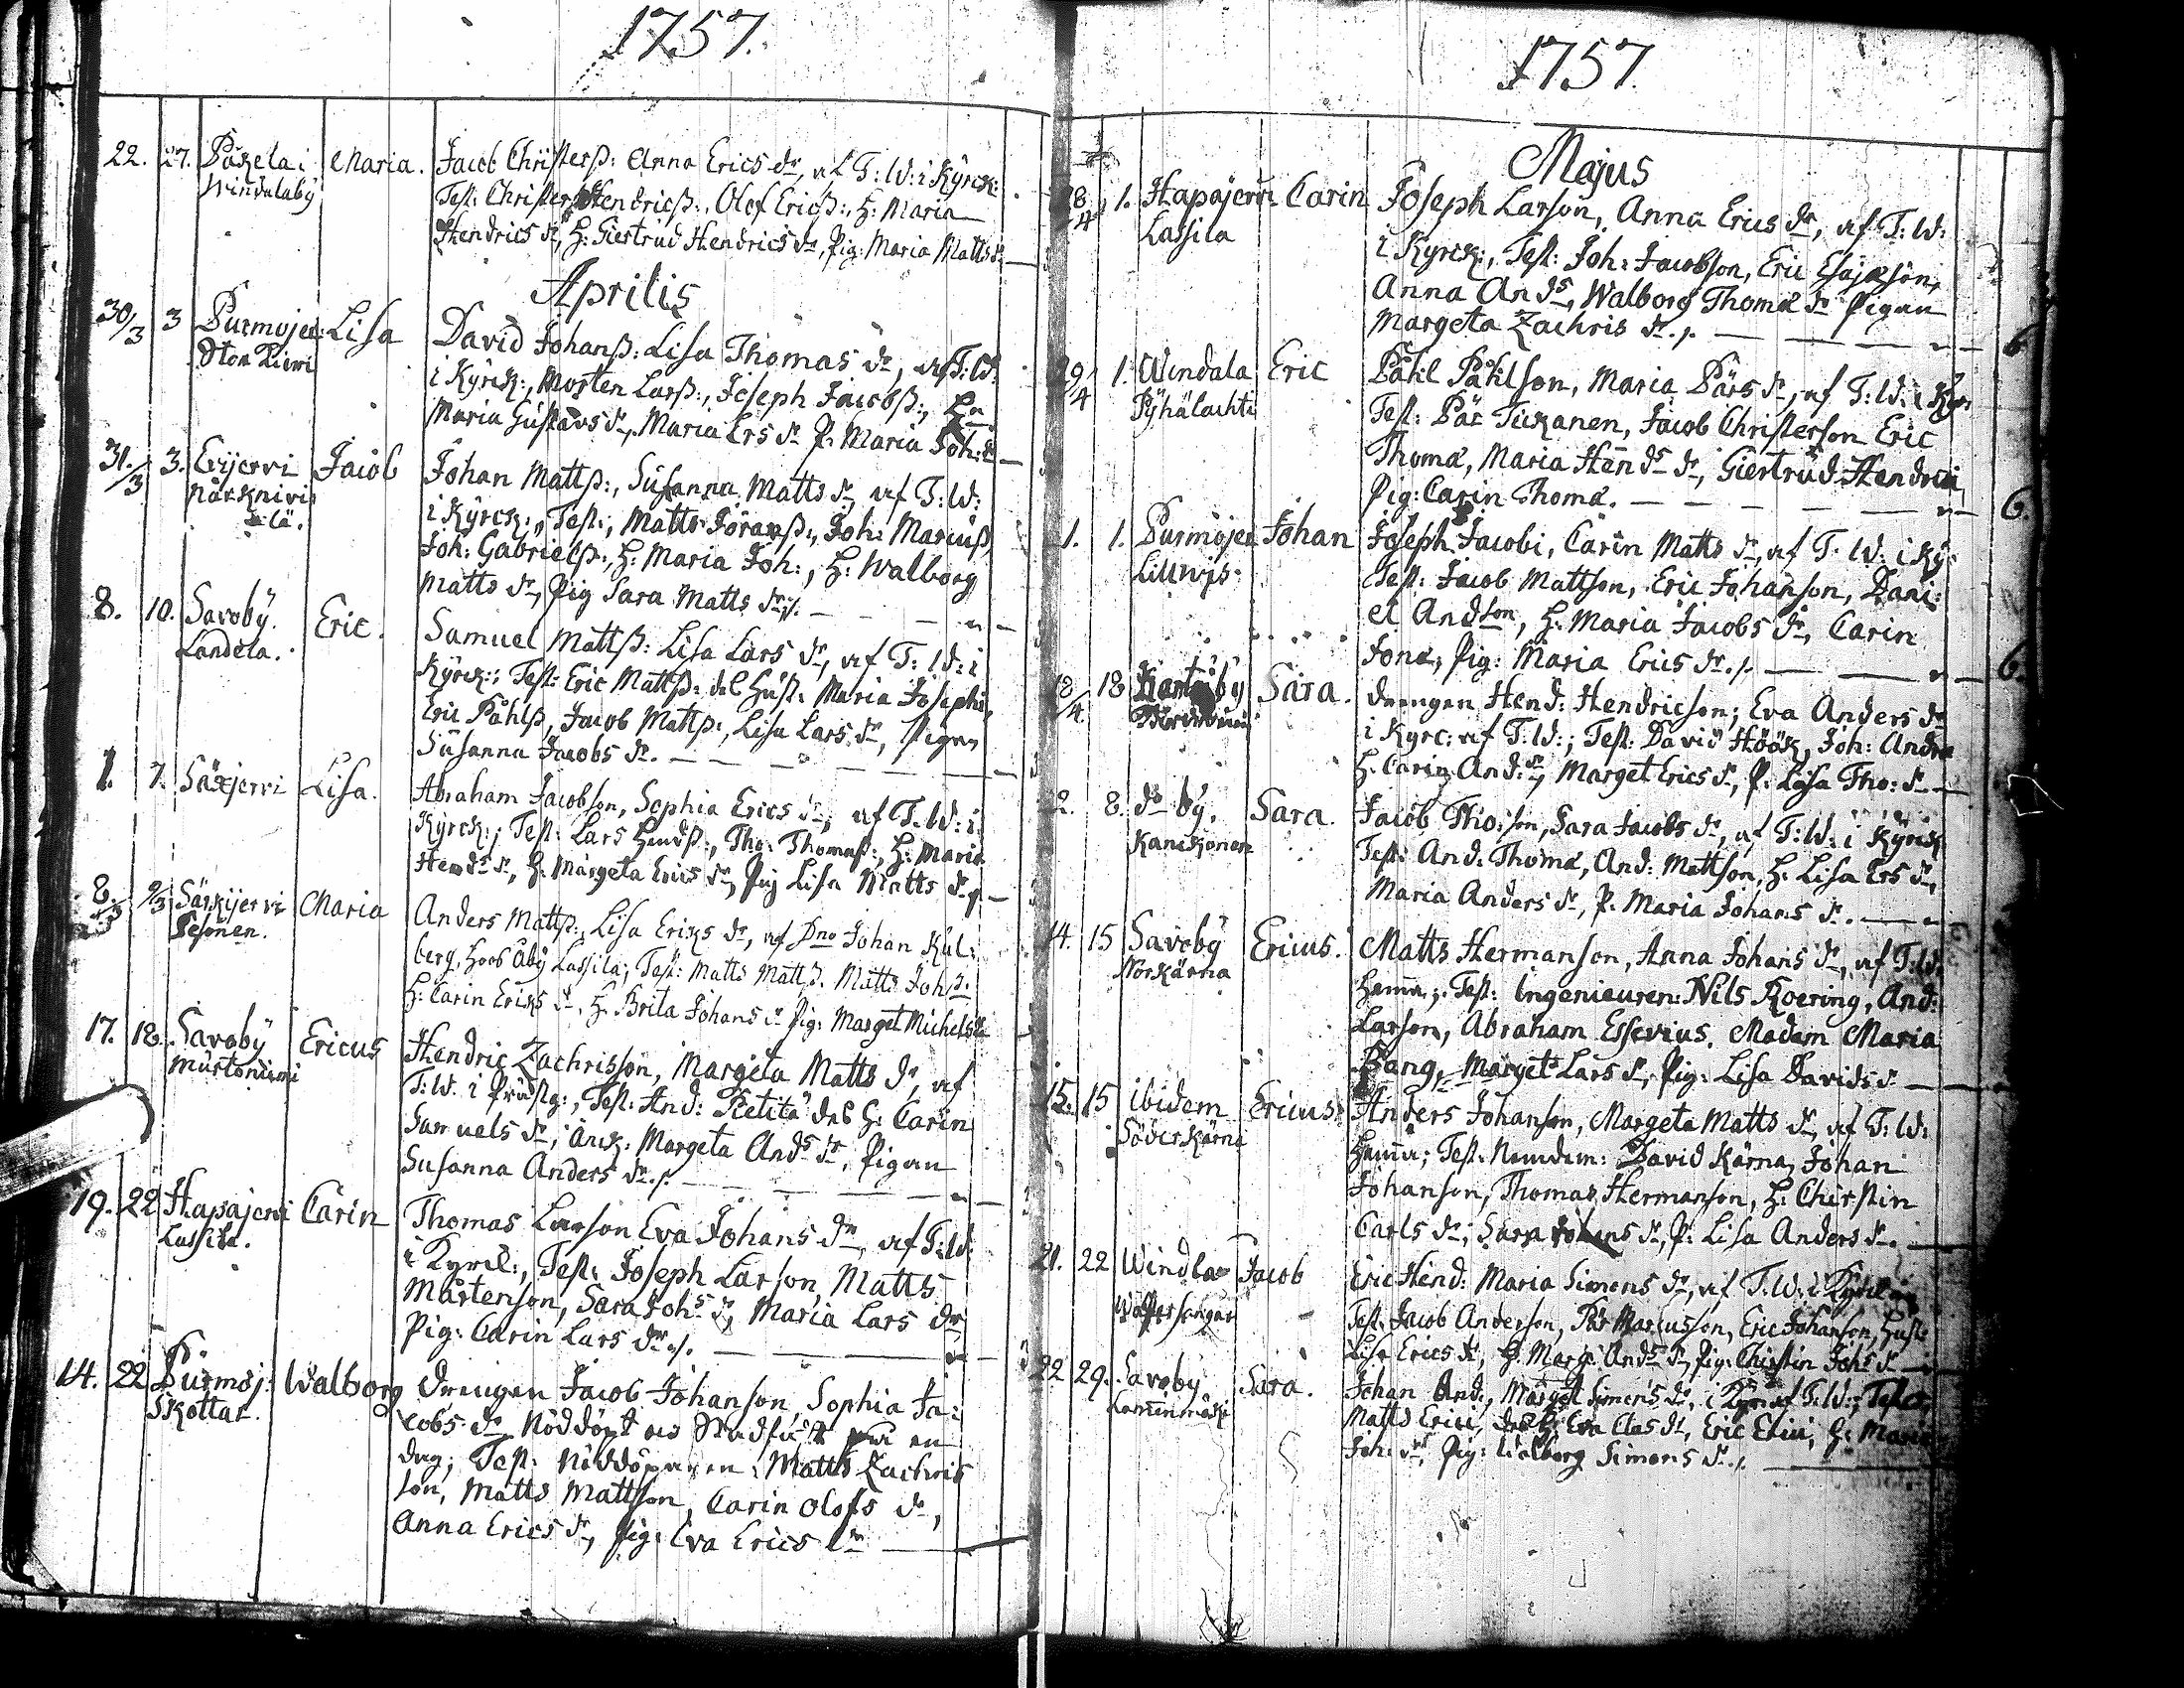 1757.
22. 27. Påkela i Maria. Jacob Christerß: Anna Erics dr, af T: W: i Kyrck:
Windalaby Test: Christer Hendricß:, Olof Ericß:, H: Maria
Hendrics dr, H: Giertrud Hendrics dr, Pig: Maria Matts dr
Aprilis
30/3 3 Purmojer: Lisa David Johanß: Lisa Thomas dr, af T: W:
Stor i Kyrck:, Morten Larß:, Joseph Jacobß:,
Maria Gustavs dr, Maria Ers dr P: Maria Joh: dr
31/3 3. Evijervi Jacob Johan Mattß:, Susanna Matts dr, af T: W:
i Kyrck:, Test:, Matts Joranß:, Joh: Marcuß
lä. Joh: Gabrielß:, H: Maria Joh:, H: Walborg
Matts dr, Pig Sara Matts dr ./.
8. 10. Savoby. Eric. Samuel Mattß: Lisa Lars dr, af T: W: i
Landela. Kyrck:; Test: Eric Mattß: des Hust: Maria Josephi,
Eric Påhlß, Jacob Mattß:, Lisa Lars dr, Pigan
Susanna Jacobs dr.
1. 7. Säxjervi Lisa. Abraham Jacobson, Sophia Erics dr, af T: W: i
Kyrck:; Test: Lars Hendß:, Tho: Thomaß:, H: Maria
Hends dr, H: Margeta Erics dr, Pig Lisa Matts dr ./.
8/3 9/3 Särkijervi Maria Anders Mattß:, Lisa Eriks dr, af Dno Johan Kul:
Pesonen. berg, hoos Åby Lassila; Test: Matts Mattß. Matts Johß:
H: Carin Eriks dr, H: Brita Johans dr Pig: Marget Michels dr
17. 18. Savoby Ericus Hendric Zachrisson, Margeta Matts dr, af
Murtoniemi T: W. i Prästg:, Test: And: Pietilä des H: Carin
Samuels dr; Änck: Margeta Ands dr, Pigan
Susanna Anders dr ./.
19. 22 Hapajervi Carin Thomas Larson Eva Johans dr, af T: W:
Lassila. i Kyrck:, Test: Joseph Larson, Matts
Mårtenson, Sara Johs dr, Maria Lars dr
Pig: Carin Lars dr ./.
14. 22 Purmoj: Walborg Drengen Jacob Johanson Sophia Ja:
Skottar. cobs dr Nöddöpt en
dag; Test: Nöddöparen: Matts Zachris
son, Matts Mattson, Carin Olofs dr,
Anna Erics dr, Pig: Eva Erics dr
1757.
Majus
28/4 1. Hapajervi Carin Joseph Larson, Anna Erics dr, af T: W:
Lassila i Kyrck:, Test: Joh: Jacobson, Eric Esajæson,
Anna Ands, Walborg Thomæ dr Pigan
Margeta Zachris dr ./. 6
29/4 1. Windala Eric Påhl Påhlson, Maria Pärs dr, af T: W: i Kyr
Pyhälachti Test: Pär Tickanen, Jacob Christerson Eric
Thomæ, Maria Hends dr, Giertrud Hendrici,
Pig: Carin Thomæ. 6.
1. 1. Purmojer Johan Joseph Jacobi, Carin Matts dr, af T: W: i Ky
Lillnyis. Test: Jacob Mattson, Eric Johanson, Dani:
el Andson, H: Maria Jacobs dr, Carin
Jonæ, Pig: Maria Erics dr ./. 6.
18/4. 18 Kortesby Sara. Drengen Hend: Hendricson; Eva Anders dr
i Kyrc: af T: W:; Test: David Höök, Joh: Andræ
H: Carin And: dr, Marget Erics dr, P: Lisa Tho: dr
2. 8. do by. Sara. Jacob Tho:son, Sara Jacobs dr, af T: W: i Kyrck
Kanckonen Test: And: Thomæ, And: Mattson, H: Lisa Ers dr,
Maria Anders dr, P: Maria Johans dr.
14. 15 Savoby Ericus. Matts Hermanson, Anna Johans dr, af T: W.
Norkärna Hema; Test: Ingenieuren: Nils Koering, And:
Larson, Abraham Essevius. Madam Maria
Bang, Marget Lars dr, Pig: Lisa Davids dr
15. 15 ibidem Ericus Anders Johanson, Margeta Matts dr, af T: W:
Söderkärna Hema; Test: Nemdem: David Kärna, Johan
Johanson, Thomas Hermanson, H: Chirstin
Carls dr; Sara Johans dr, P: Lisa Anders dr.
21. 22 Windla Jacob Eric Hend: Maria Simons dr, af T: W: i
Test: Jacob Anderson, Pär Marcusson, Eric Johanson, Hust:
Lisa Erics dr, H: Marg: Ands dr, Pig: Chirstin Johs dr
22 29. Savoby Sara. Johan And:, Marget Simons dr, i Kyrc af T: W:; Test:
Matts Erici, des H: Eva Clas dr, Eric Erici, H: Maria
Joh: dr, Pig: Walborg Simons dr ./.